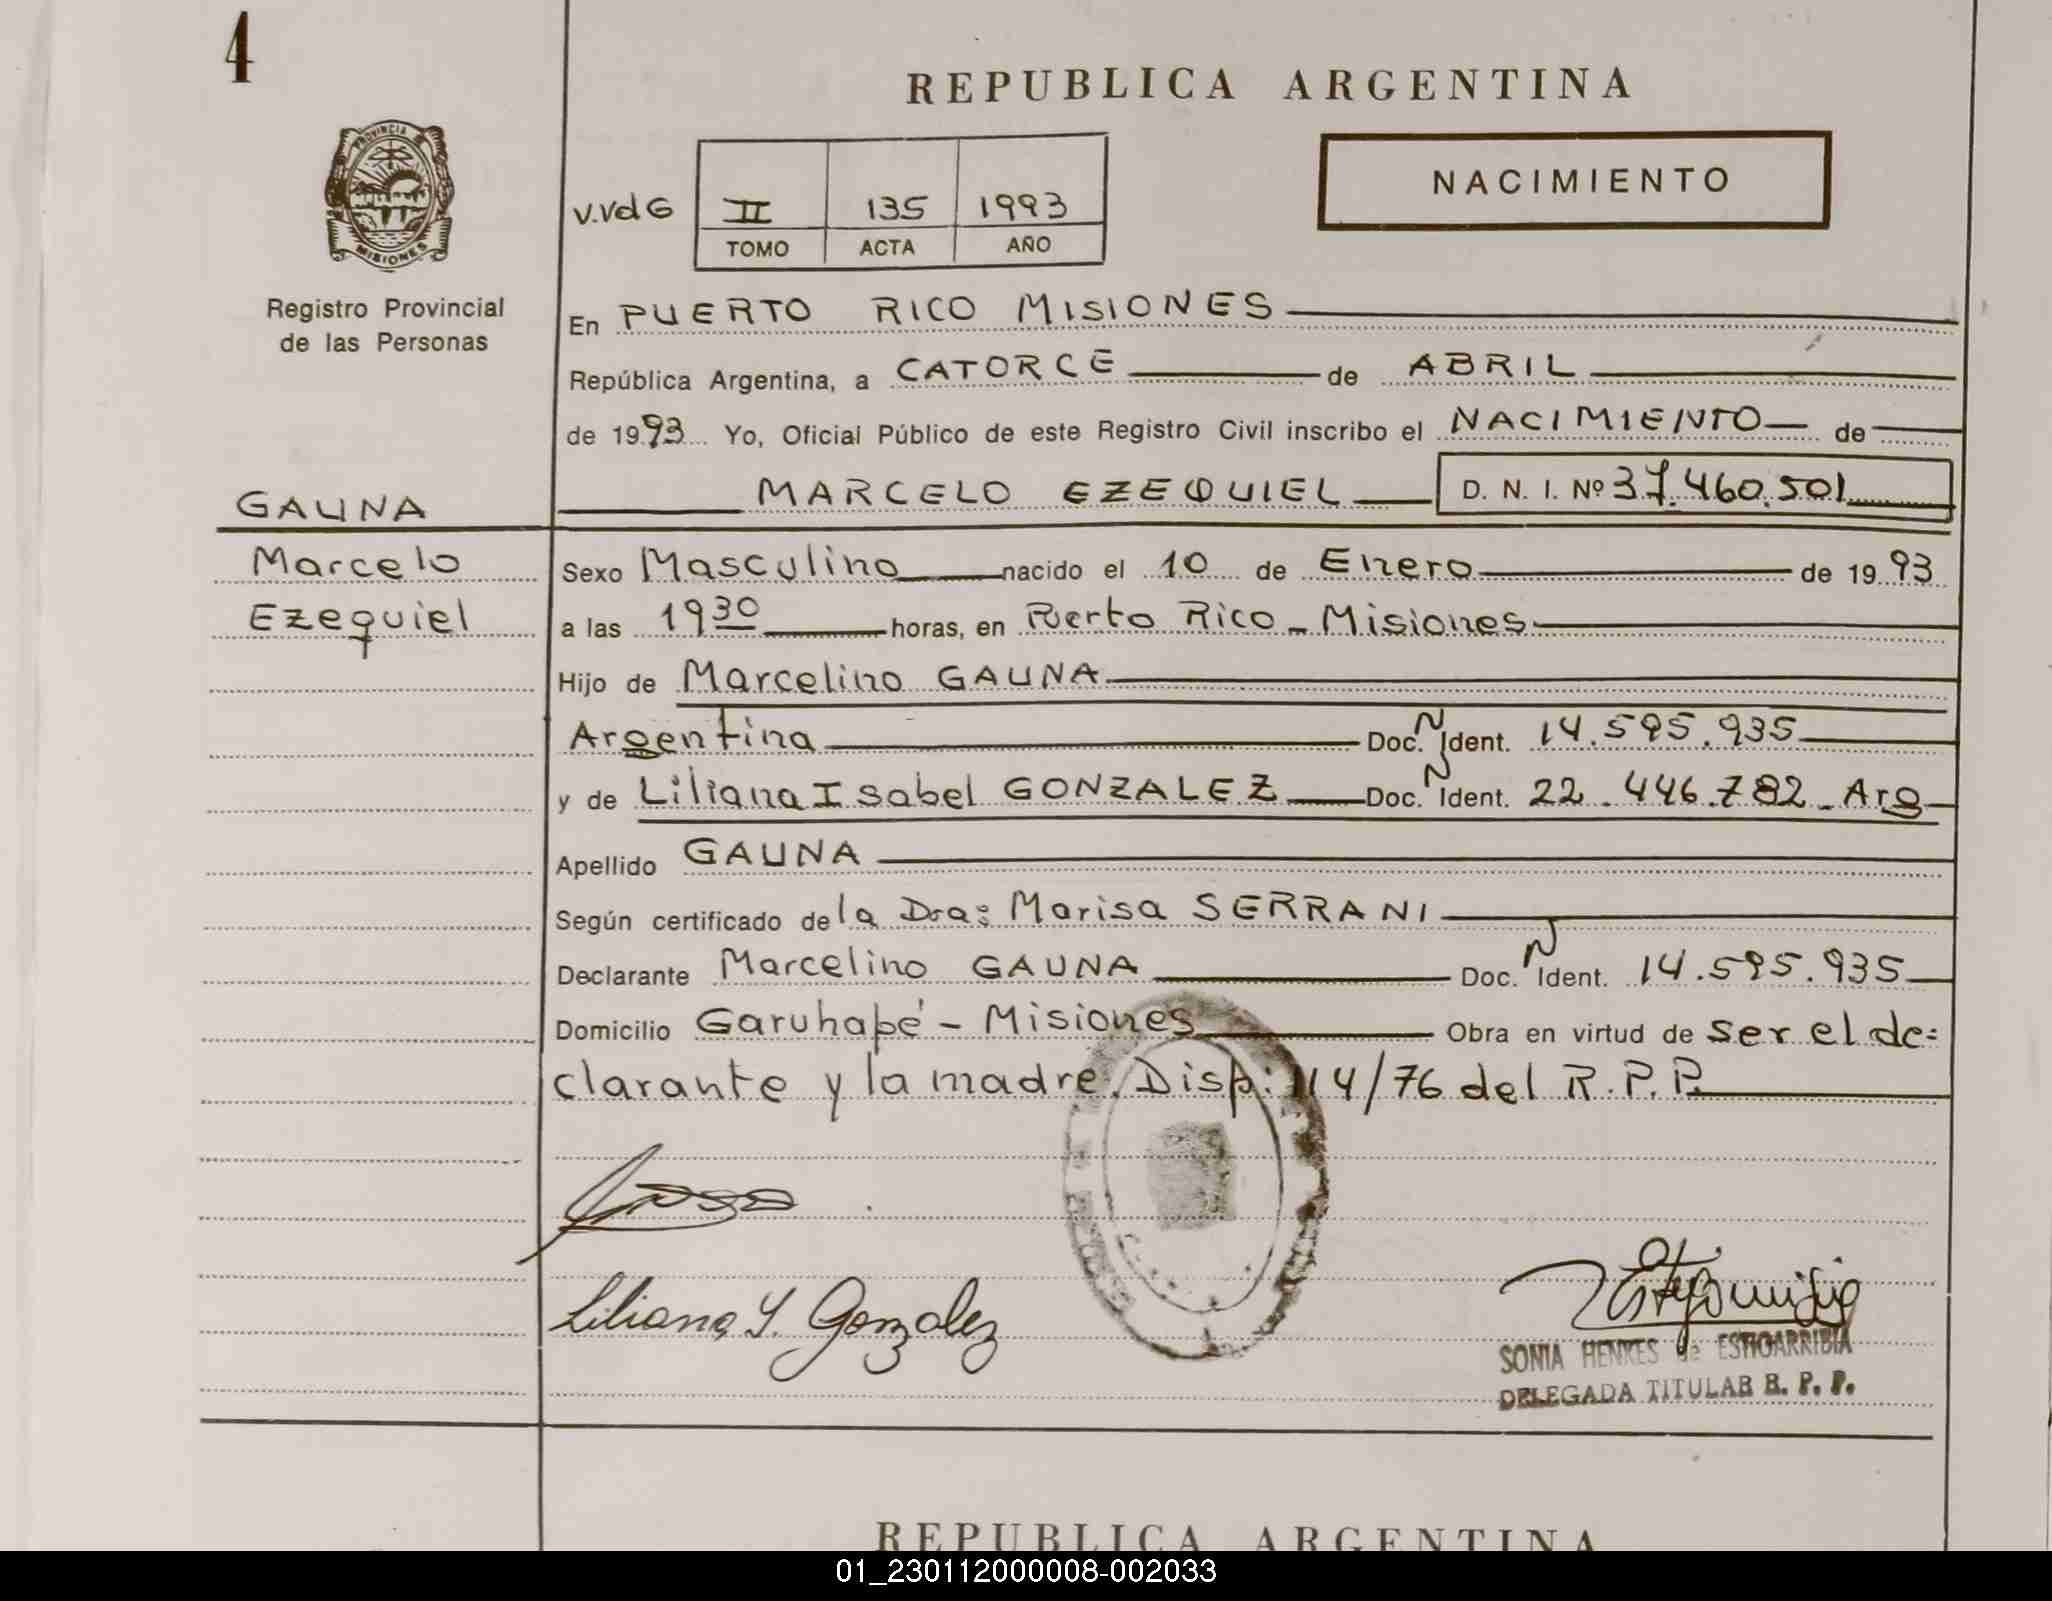 4
REPUBLICA ARGENTINA
PROVINCIA
MISIONES
Registro Provincial
de las Personas
NACIMIENTO
V.VdG II 135 1993
TOMO ACTA AÑO
En PUERTO RICO MISIONES
República Argentina, a CATORCE de ABRIL
de 1993 Yo, Oficial Público de este Registro Civil inscribo el NACIMIENTO de
MARCELO EZEQUIEL D. N. I. Nº 37.460.501
GAUNA
Marcelo
Ezequiel
Sexo Masculino nacido el 10 de Enero de 1993
a las 19 30 horas, en Puerto Rico - Misiones
Hijo de Marcelino GAUNA
Argentina Doc. N Ident. 14.595.935
y de Liliana Isabel GONZALEZ Doc. N Ident. 22.446.782 - Arg
Apellido GAUNA
Según certificado de la Dra: Marisa SERRANI
Declarante Marcelino GAUNA Doc. N Ident. 14.595.935
Domicilio Garuhapé - Misiones Obra en virtud de ser el de=
clarante y la madre. Disp: 114/76 del R.P.P.
Liliana Y. Gonzalez
SONIA HENKES de ESTIGARRIBIA
DELEGADA TITULAR R. P. P.
REPUBLICA ARGENTINA
01_230112000008-002033